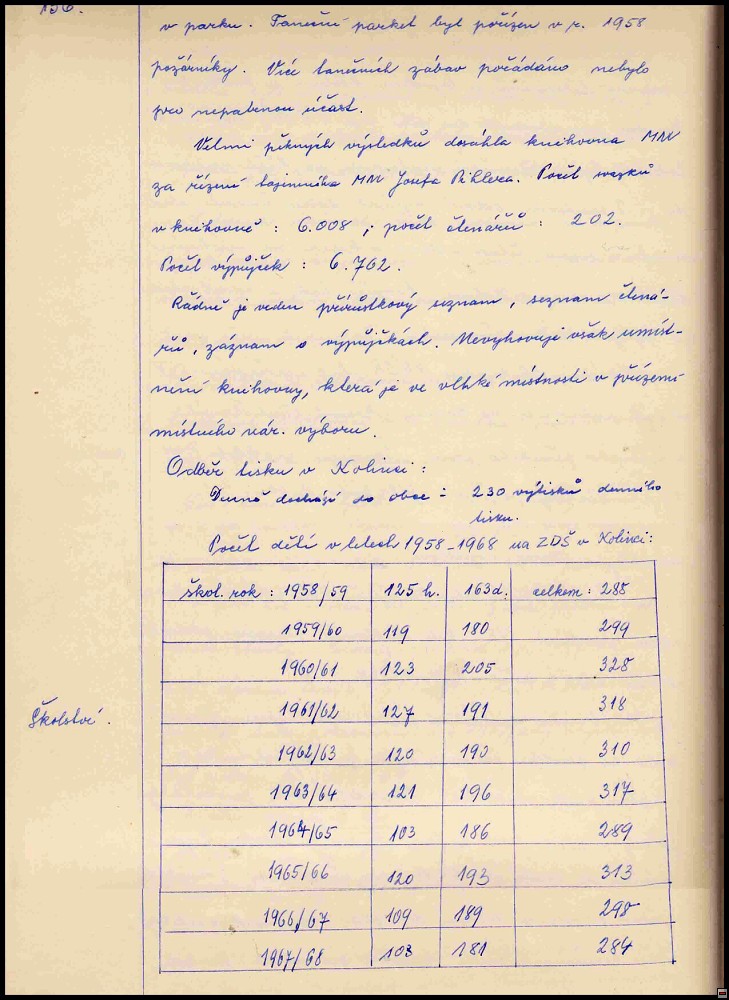 156.
v parku. Taneční parket byl pořízen v r. 1958
požárníky. Více tanečních zábav pořádáno nebylo
pro nepatrnou účast.
Velmi pěkných výsledků dosáhla knihovna MNV
za řízení tajemníka MNV Josefa Pihlera. Počet svazků
v knihovně : 6.008 , počet čtenářů : 202.
Počet výpůjček : 6.762.
Řádně je veden přírůstkový seznam, seznam čtená-
řů, záznam o výpůjčkách. Nevyhovuje však umíst-
nění knihovny, která je ve vlhké místnosti v přízemí
místního nár. výboru.
Odběr tisku v Kolinci :
Denně dochází do obce : 230 výtisků denního
tisku.
Počet dětí v letech 1958-1968 na ZDŠ v Kolinci:
škol. rok : 1958/59 125 h. 163 d. celkem : 288
1959/60 119 180 299
1960/61 123 205 328
Školství.
1961/62 127 191 318
1962/63 120 190 310
1963/64 121 196 317
1964/65 103 186 289
1965/66 120 193 313
1966/67 109 189 298
1967/68 103 181 284